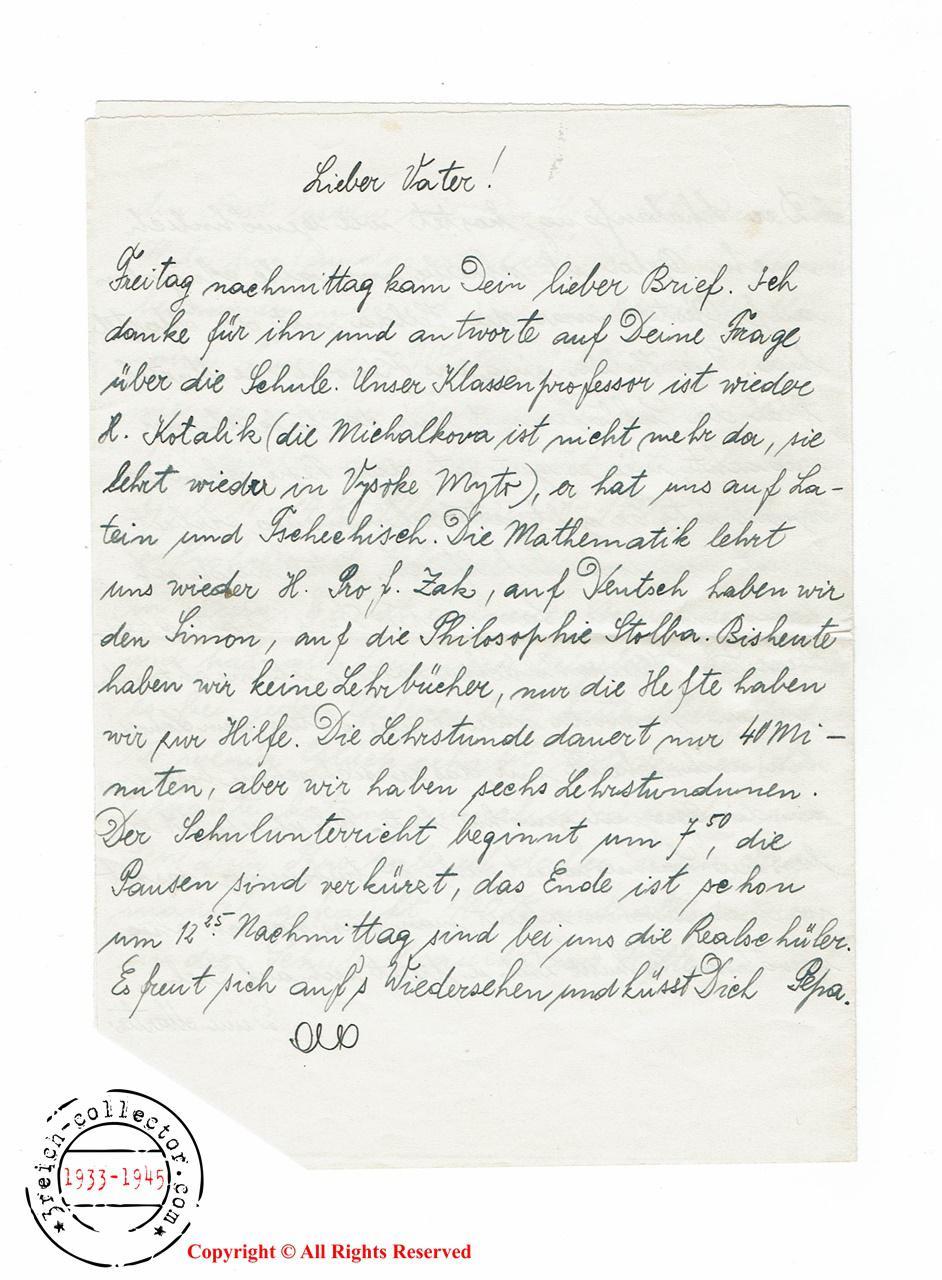 Lieber Vater!
Freitag nachmittag kam Dein lieber Brief. Ich
danke für ihn und antworte auf Deine Frage
über die Schule. Unser Klassenprofessor ist wieder
H. Kotalik (die Michalkova ist nicht mehr da, sie
lehrt wieder in Vysoke Myto), er hat uns auf La-
tein und Tschechisch. Die Mathematik lehrt
uns wieder H. Prof. Zak, auf Deutsch haben wir
den Simon, auf die Philosophie Stolba. Bisheute
haben wir keine Lehrbücher, nur die Hefte haben
wir zur Hilfe. Die Lehrstunde dauert nur 40 Mi-
nuten, aber wir haben sechs Lehrstundunen.
Der Schulunterricht beginnt um 7 50, die
Pausen sind verkürzt, das Ende ist schon
um 12 25. Nachmittag sind bei uns die Realschüler.
Es freut sich auf's Wiedersehen und küsst Dich Pepa.
3reich-collector.com
1933-1945
Copyright © All Rights Reserved